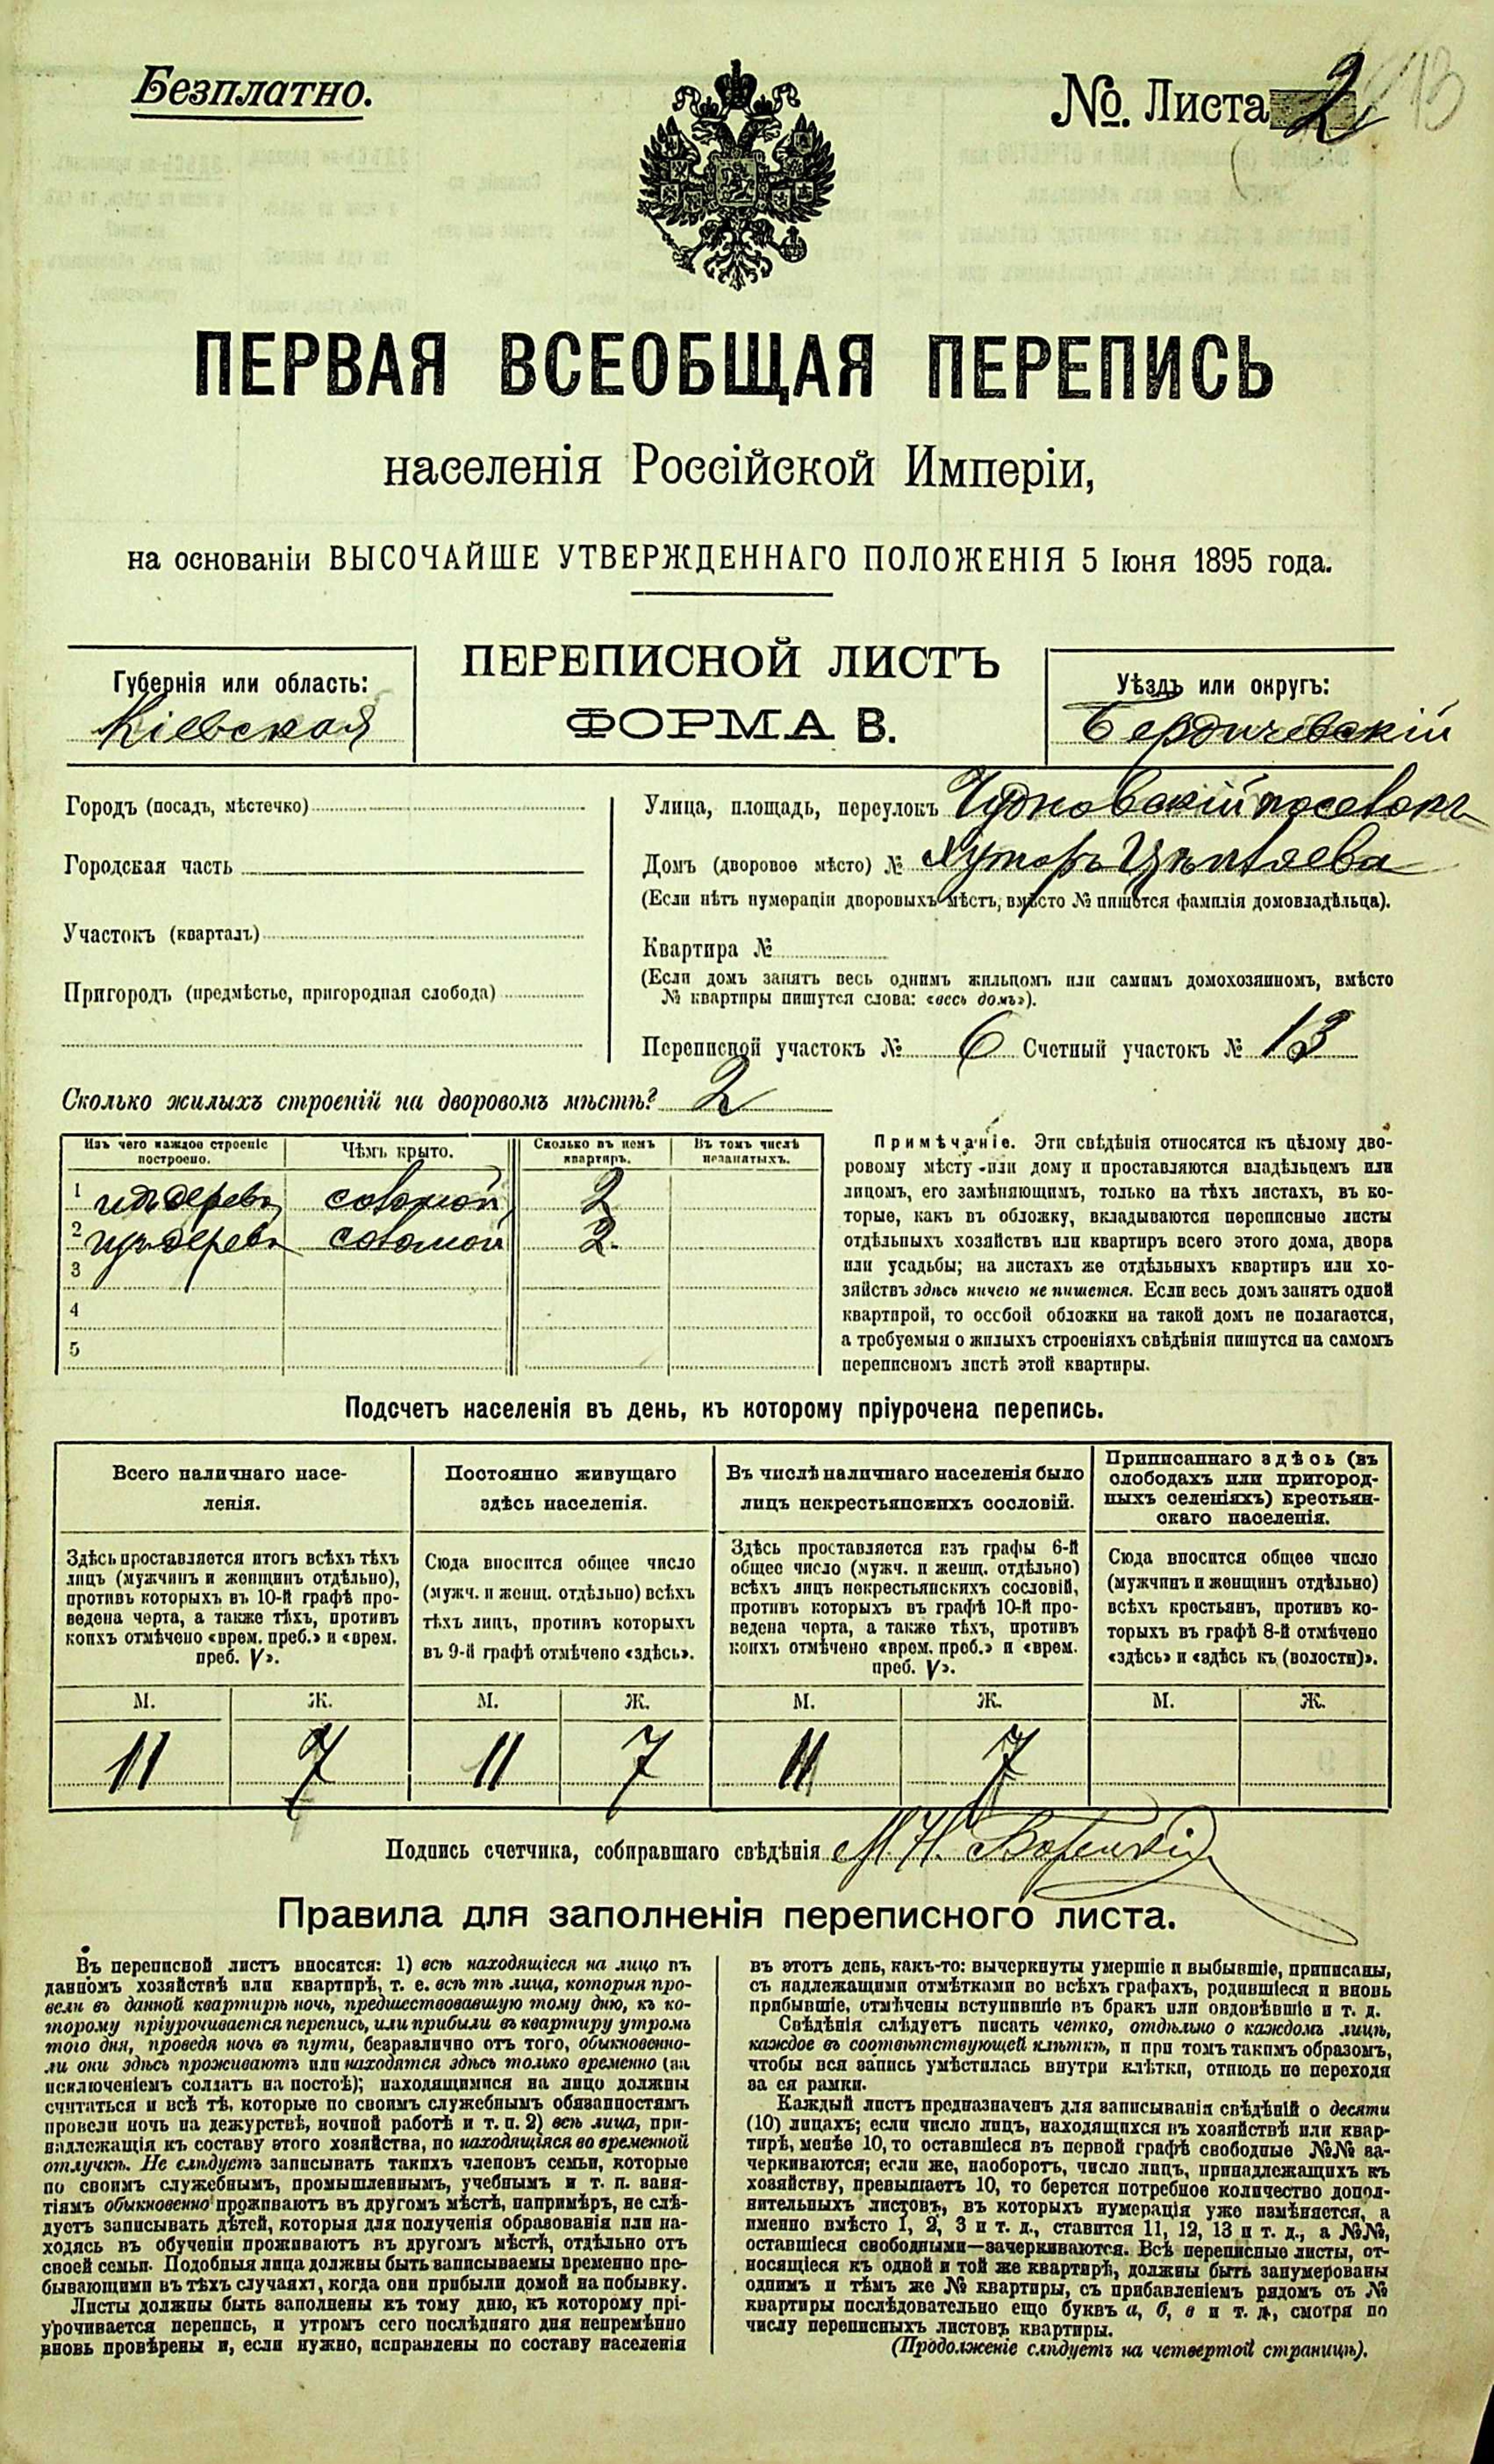 Безплатно.
№. Листа 2
ПЕРВАЯ ВСЕОБЩАЯ ПЕРЕПИСЬ
населенія Россійской Имперіи,
на основаніи ВЫСОЧАЙШЕ УТВЕРЖДЕННАГО ПОЛОЖЕНІЯ 5 Іюня 1895 года.
Губернія или область:
Кіевская
ПЕРЕПИСНОЙ ЛИСТЪ
ФОРМА В.
Уѣздъ или округъ:
Бердичевскій
Городъ (посадъ, мѣстечко)
Городская часть
Участокъ (кварталъ)
Пригородъ (предмѣстье, пригородная слобода)
Улица, площадь, переулокъ Чудновскій поселокъ
Домъ (дворовое мѣсто) № хуторъ
(Если нѣтъ нумераціи дворовыхъ мѣстъ, вмѣсто № пишется фамилія домовладѣльца).
Квартира №
(Если домъ занятъ весь однимъ жильцомъ или самимъ домохозяиномъ, вмѣсто
№ квартиры пишутся слова: «весь домъ»).
Переписной участокъ № 6 Счетный участокъ № 13
Сколько жилыхъ строеній на дворовомъ мѣстѣ? 2
Изъ чего каждое строеніе построено. Чѣмъ крыто. Сколько въ немъ квартиръ. Въ томъ числѣ незанятыхъ.
1 изъ дерева соломой 2
2 изъ дерева соломой 2.
3
4
5
Примѣчаніе. Эти свѣдѣнія относятся къ цѣлому дво-
ровому мѣсту или дому и проставляются владѣльцемъ или
лицомъ, его замѣняющимъ, только на тѣхъ листахъ, въ ко-
торые, какъ въ обложку, вкладываются переписные листы
отдѣльныхъ хозяйствъ или квартиръ всего этого дома, двора
или усадьбы; на листахъ же отдѣльныхъ квартиръ или хо-
зяйствъ здѣсь ничего не пишется. Если весь домъ занятъ одной
квартирой, то особой обложки на такой домъ не полагается,
а требуемыя о жилыхъ строеніяхъ свѣдѣнія пишутся на самомъ
переписномъ листѣ этой квартиры.
Подсчетъ населенія въ день, къ которому пріурочена перепись.
Всего наличнаго насе-
ленія.
Постоянно живущаго
здѣсь населенія.
Въ числѣ наличнаго населенія было
лицъ некрестьянскихъ сословій.
Приписаннаго здѣсь (въ
слободахъ или пригород-
ныхъ селеніяхъ) крестьян-
скаго населенія.
Здѣсь проставляется итогъ всѣхъ тѣхъ
лицъ (мужчинъ и женщинъ отдѣльно),
противъ которыхъ въ 10-й графѣ про-
ведена черта, а также тѣхъ, противъ
коихъ отмѣчено «врем. преб.» и «врем.
преб. V».
Сюда вносится общее число
(мужч. и женщ. отдѣльно) всѣхъ
тѣхъ лицъ, противъ которыхъ
въ 9-й графѣ отмѣчено «здѣсь».
Здѣсь проставляется изъ графы 6-й
общее число (мужч. и женщ. отдѣльно)
всѣхъ лицъ некрестьянскихъ сословій,
противъ которыхъ въ графѣ 10-й про-
ведена черта, а также тѣхъ, противъ
коихъ отмѣчено «врем. преб.» и «врем.
преб. V».
Сюда вносится общее число
(мужчинъ и женщинъ отдѣльно)
всѣхъ крестьянъ, противъ ко-
торыхъ въ графѣ 8-й отмѣчено
«здѣсь» и «здѣсь къ (волости)».
М. Ж. М. Ж. М. Ж. М. Ж.
11 7 11 7 11 7
Подпись счетчика, собиравшаго свѣдѣнія М. Н.
Правила для заполненія переписного листа.
Въ переписной листъ вносятся: 1) всѣ находящіеся на лицо въ
данномъ хозяйствѣ или квартирѣ, т. е. всѣ тѣ лица, которыя про-
вели въ данной квартирѣ ночь, предшествовавшую тому дню, къ ко-
торому пріурочивается перепись, или прибыли въ квартиру утромъ
того дня, проведя ночь въ пути, безразлично отъ того, обыкновенно-
ли они здѣсь проживаютъ или находятся здѣсь только временно (за
исключеніемъ солдатъ на постоѣ); находящимися на лицо должны
считаться и всѣ тѣ, которые по своимъ служебнымъ обязанностямъ
провели ночь на дежурствѣ, ночной работѣ и т. п. 2) всѣ лица, при-
надлежащія къ составу этого хозяйства, но находящіяся во временной
отлучкѣ. Не слѣдуетъ записывать такихъ членовъ семьи, которые
по своимъ служебнымъ, промышленнымъ, учебнымъ и т. п. заня-
тіямъ обыкновенно проживаютъ въ другомъ мѣстѣ, напримѣръ, не слѣ-
дуетъ записывать дѣтей, которыя для полученія образованія или на-
ходясь въ обученіи проживаютъ въ другомъ мѣстѣ, отдѣльно отъ
своей семьи. Подобныя лица должны быть записываемы временно пре-
бывающими въ тѣхъ случаяхъ, когда они прибыли домой на побывку.
Листы должны быть заполнены къ тому дню, къ которому прі-
урочивается перепись, и утромъ сего послѣдняго дня непремѣнно
вновь провѣрены и, если нужно, исправлены по составу населенія
въ этотъ день, какъ-то: вычеркнуты умершіе и выбывшіе, приписаны,
съ надлежащими отмѣтками во всѣхъ графахъ, родившіеся и вновь
прибывшіе, отмѣчены вступившіе въ бракъ или овдовѣвшіе и т. д.
Свѣдѣнія слѣдуетъ писать четко, отдѣльно о каждомъ лицѣ,
каждое въ соотвѣтствующей клѣткѣ, и при томъ такимъ образомъ,
чтобы вся запись умѣстилась внутри клѣтки, отнюдь не переходя
за ея рамки.
Каждый листъ предназначенъ для записыванія свѣдѣній о десяти
(10) лицахъ; если число лицъ, находящихся въ хозяйствѣ или квар-
тирѣ, менѣе 10, то оставшіеся въ первой графѣ свободные №№ за-
черкиваются; если же, наоборотъ, число лицъ, принадлежащихъ къ
хозяйству, превышаетъ 10, то берется потребное количество допол-
нительныхъ листовъ, въ которыхъ нумерація уже измѣняется, а
именно вмѣсто 1, 2, 3 и т. д., ставится 11, 12, 13 и т. д., а №№,
оставшіеся свободными—зачеркиваются. Всѣ переписные листы, от-
носящіеся къ одной и той же квартирѣ, должны быть занумерованы
однимъ и тѣмъ же № квартиры, съ прибавленіемъ рядомъ съ №
квартиры послѣдовательно еще буквъ а, б, в и т. д., смотря по
числу переписныхъ листовъ квартиры.
(Продолженіе слѣдуетъ на четвертой страницѣ).